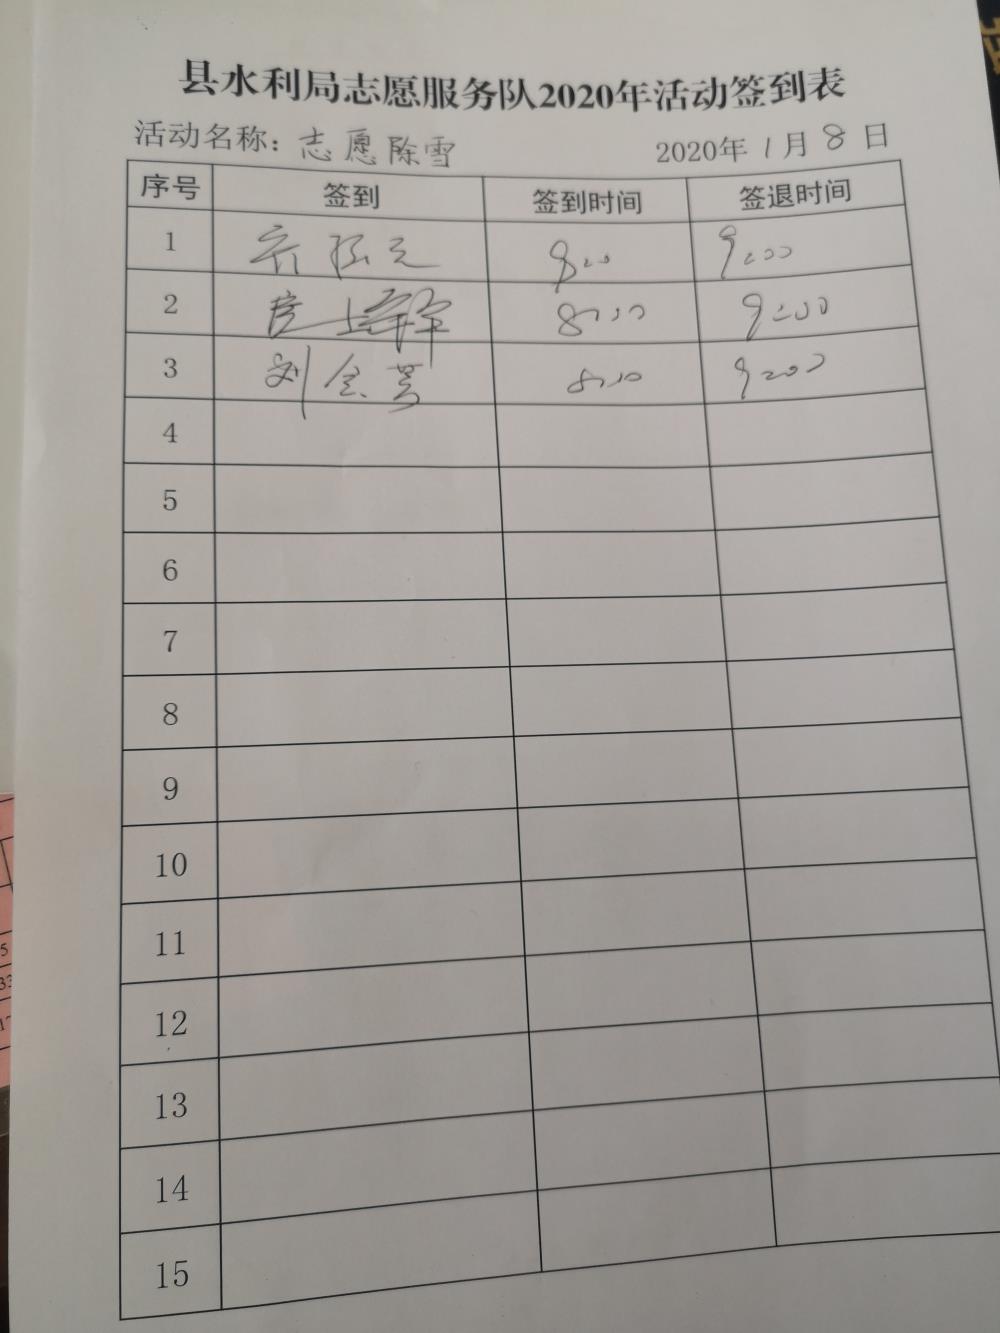 县水利局志愿服务队2020年活动签到表
活动名称：志愿除雪 2020年1月8日
序号 签到 签到时间 签退时间
1 9:00
2 8:00 9:00
3 刘会芳 8:00 9:00
4
5
6
7
8
9
10
11
12
13
14
15